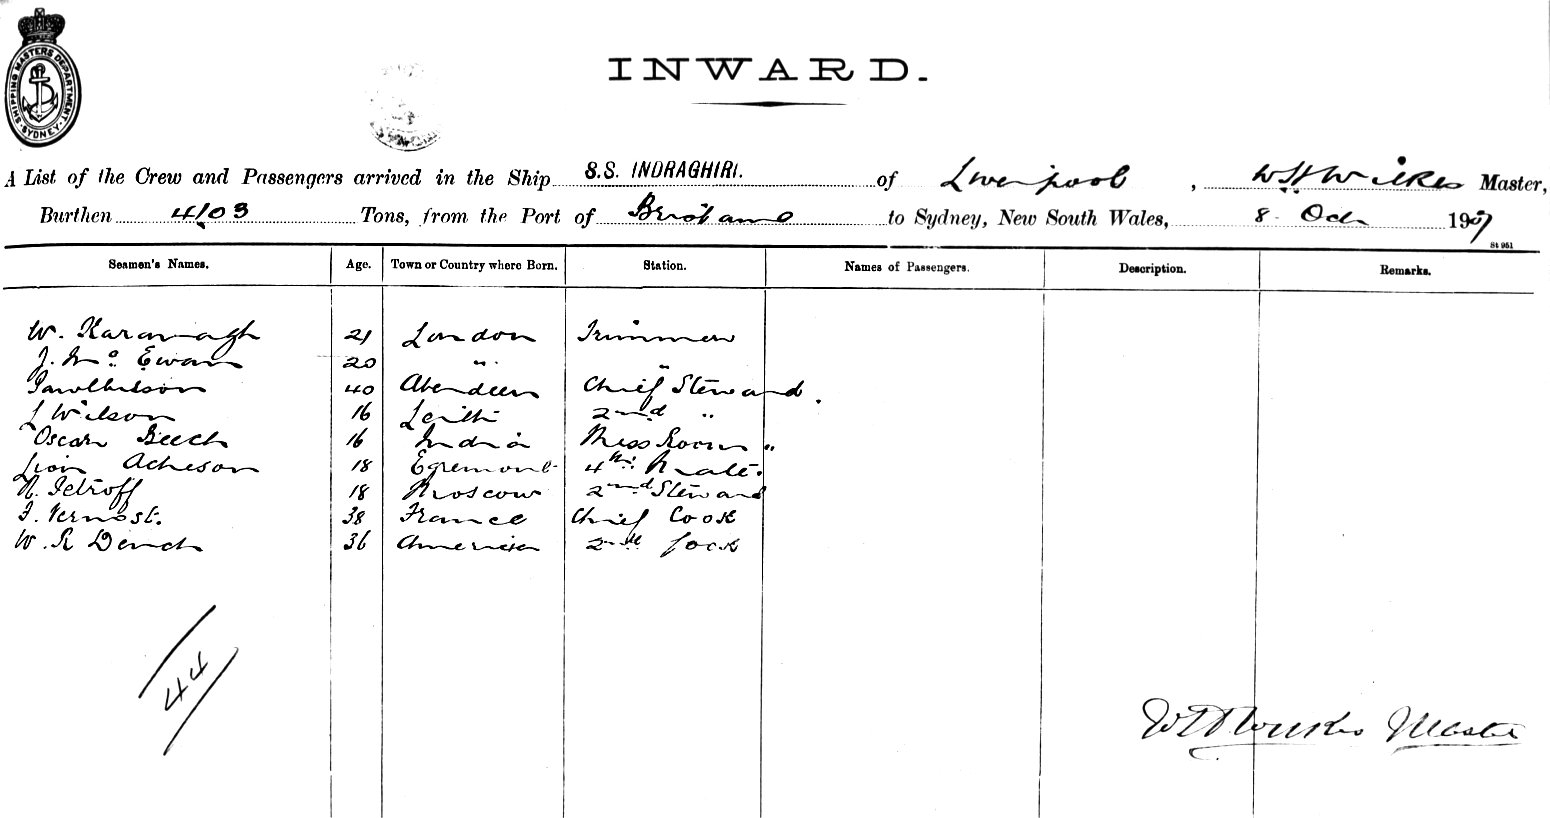 SHIPPING MASTERS DEPARTMENT. SYDNEY.
INWARD.
A List of the Crew and Passengers arrived in the Ship S.S. INDRAGHIRI. of Liverpool, W H Wilkes Master,
Burthen 4103 Tons, from the Port of Brisbane to Sydney, New South Wales, 8 Oct 1907
St 951
Seamen's Names. Age. Town or Country where Born. Station. Names of Passengers. Description. Remarks.
W. Kavanagh 21 London Trimmer
J. Mc Ewan 20 " "
40 Aberdeen Chief Steward.
J Wilson 16 Leith 2nd "
Oscar Beech 16 India Mess Room "
Acheson 18 Egremont 4th Mate.
N. Petroff 18 Moscow 2nd Steward
F. Vernost. 38 France Chief Cook
W. R Dench 36 America 2nd Cook
44
W H Wilkes Master